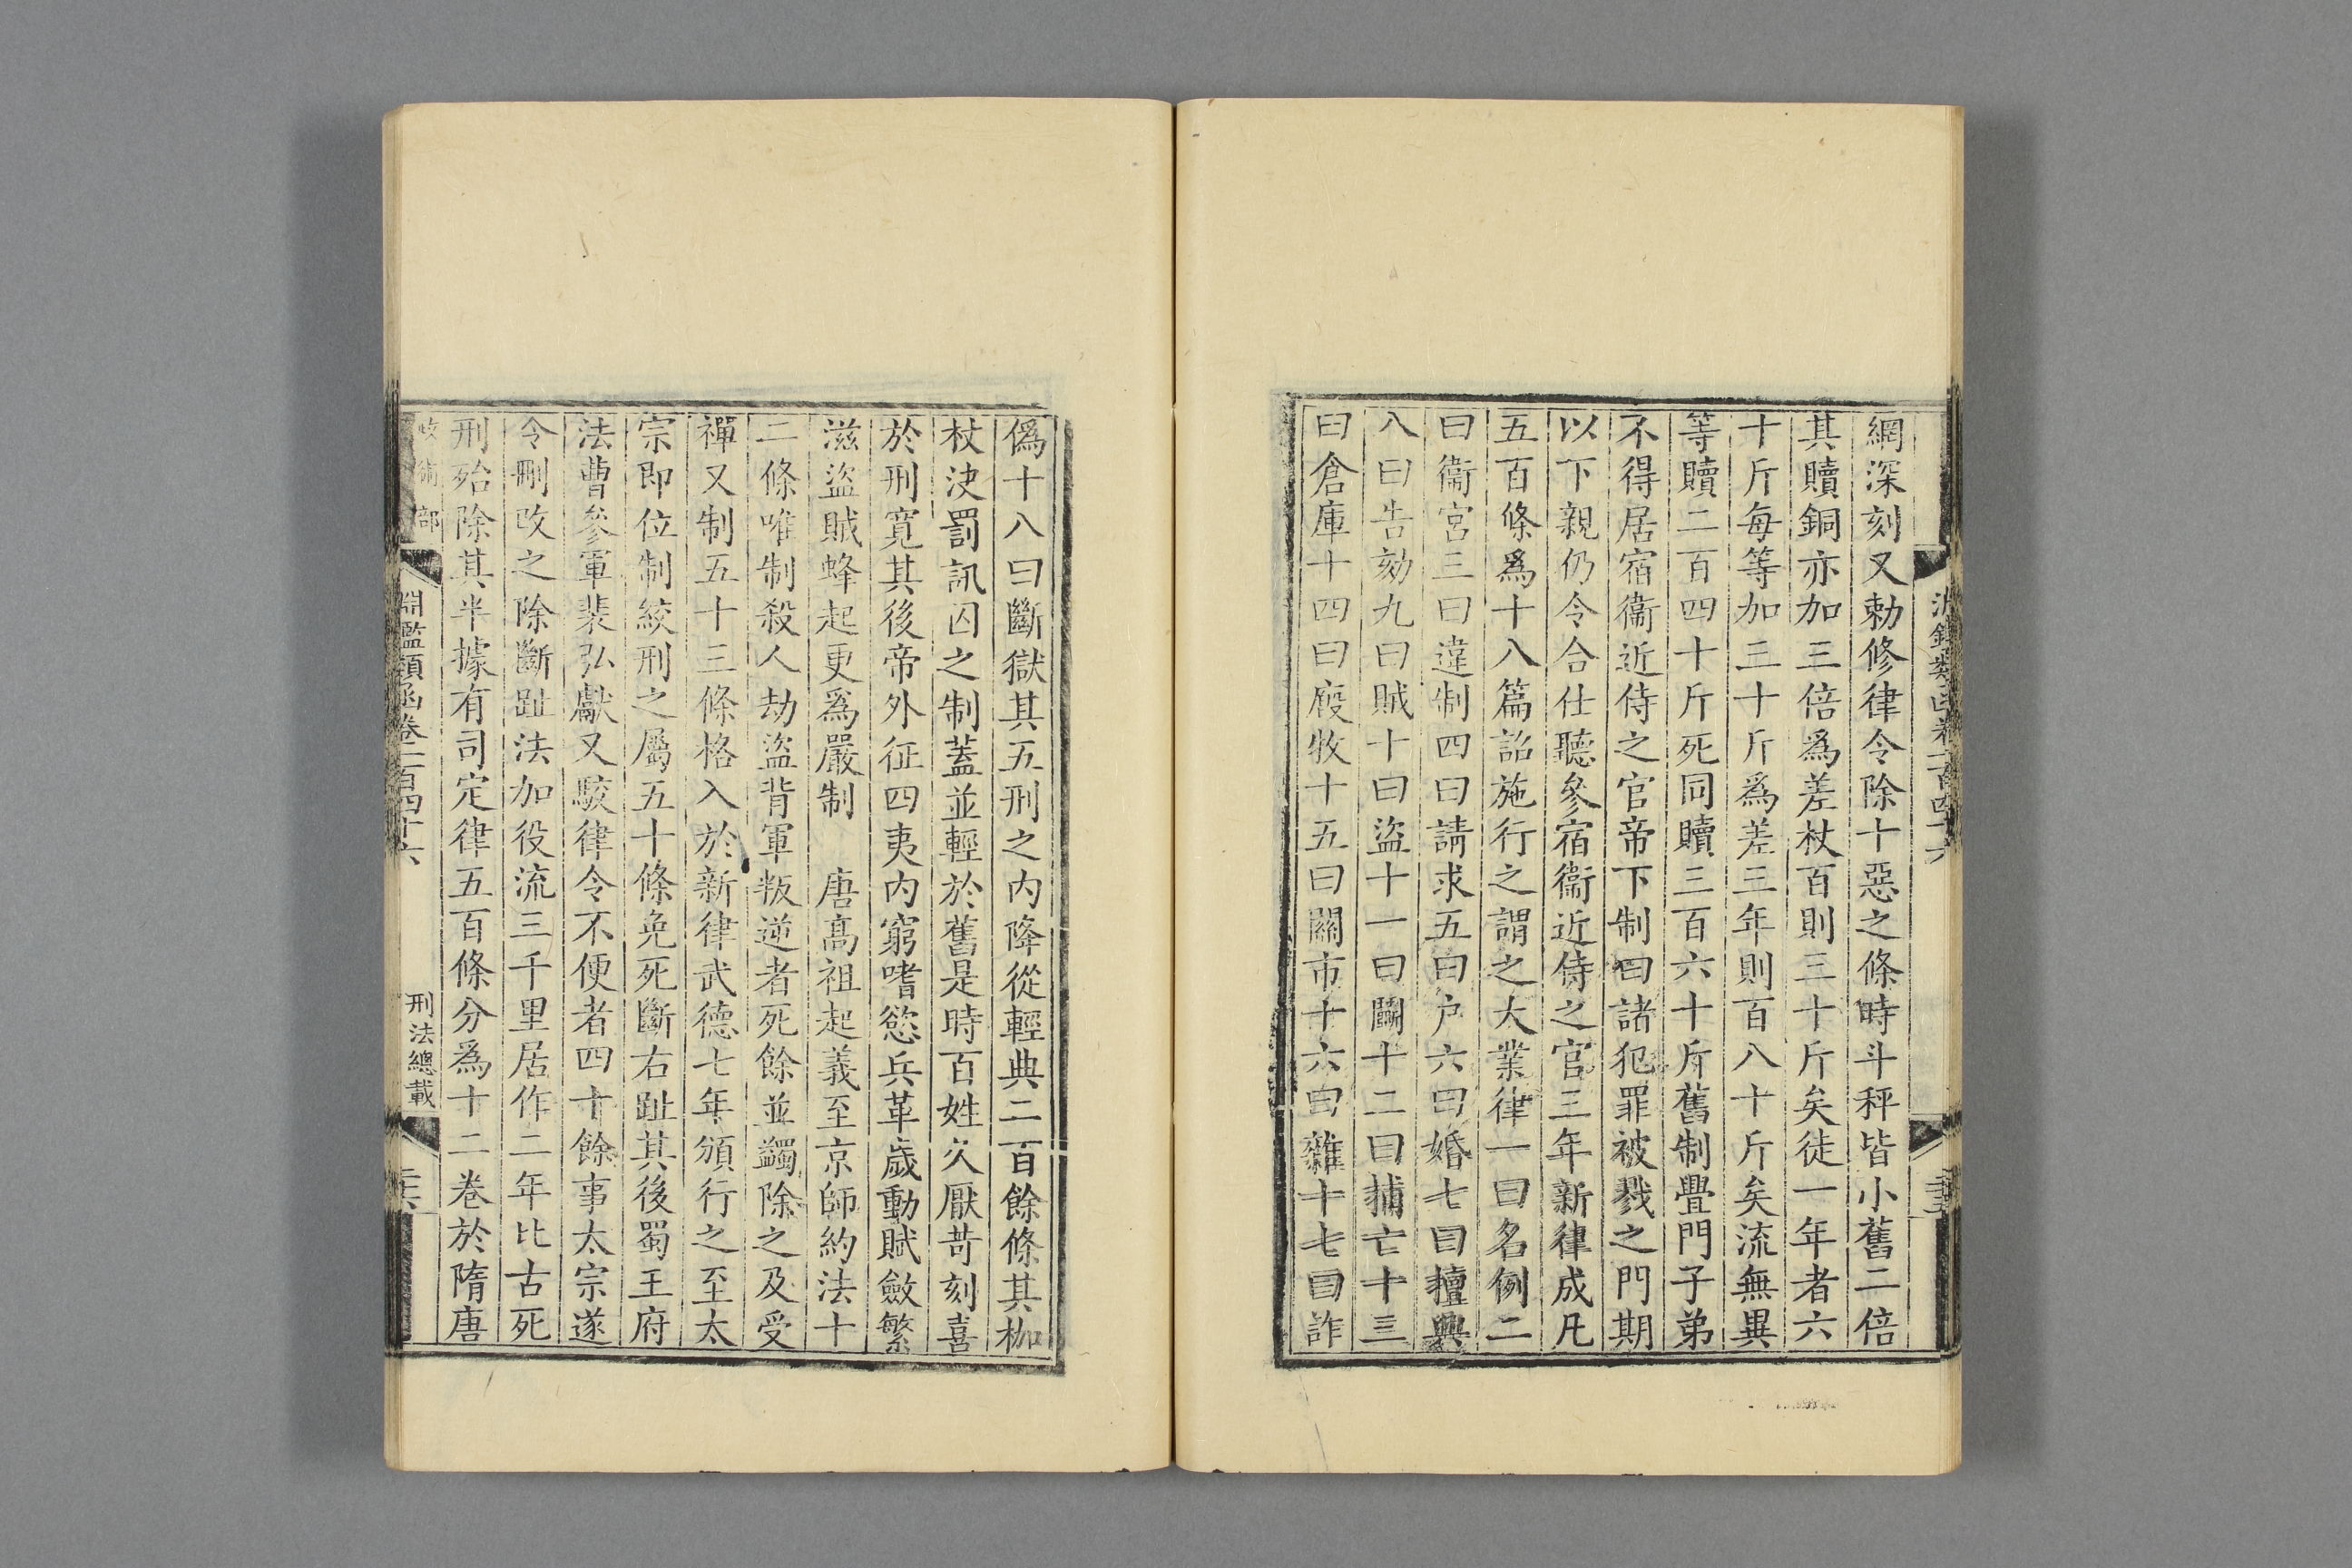 網深刻又勅修律令除十惡之條時斗秤皆小舊二倍
其贖銅亦加三倍爲差杖百則三十斤矣徒一年者六
十斤每等加三十斤爲差三年則百八十斤矣流無異
等贖二百四十斤死同贖三百六十斤舊制舋門子弟
不得居宿衞近侍之官帝下制曰諸犯罪被戮之門期
以下親仍令合仕聽參宿衞近侍之官三年新律成凡
五百條爲十八篇詔施行之謂之大業律一曰名例二
曰衞宮三曰違制四曰請求五曰户六曰婚七曰擅興
八曰告劾九曰賊十曰盜十一曰鬭十二曰捕亡十三
曰倉庫十四曰廐牧十五曰關市十六曰雜十七曰詐
僞十八曰斷獄其五刑之内降從輕典二百餘條其枷
杖决罰訊囚之制蓋並輕於舊是時百姓久厭苛刻喜
於刑寛其後帝外征四夷内窮嗜慾兵革歲動賦斂繁
滋盜賊蜂起更爲嚴制　唐高祖起義至京師約法十
二條唯制殺人劫盜背軍叛逆者死餘並蠲除之及受
禪又制五十三條格入於新律武德七年頒行之至太
宗即位制絞刑之屬五十條免死斷右趾其後蜀王府
法曹參軍裴弘獻又駮律令不便者四十餘事太宗遂
令刪改之除斷趾法加役流三千里居作二年比古死
刑殆除其半據有司定律五百條分爲十二卷於隋唐
淵鑑類函卷二百四十六
刑法總載